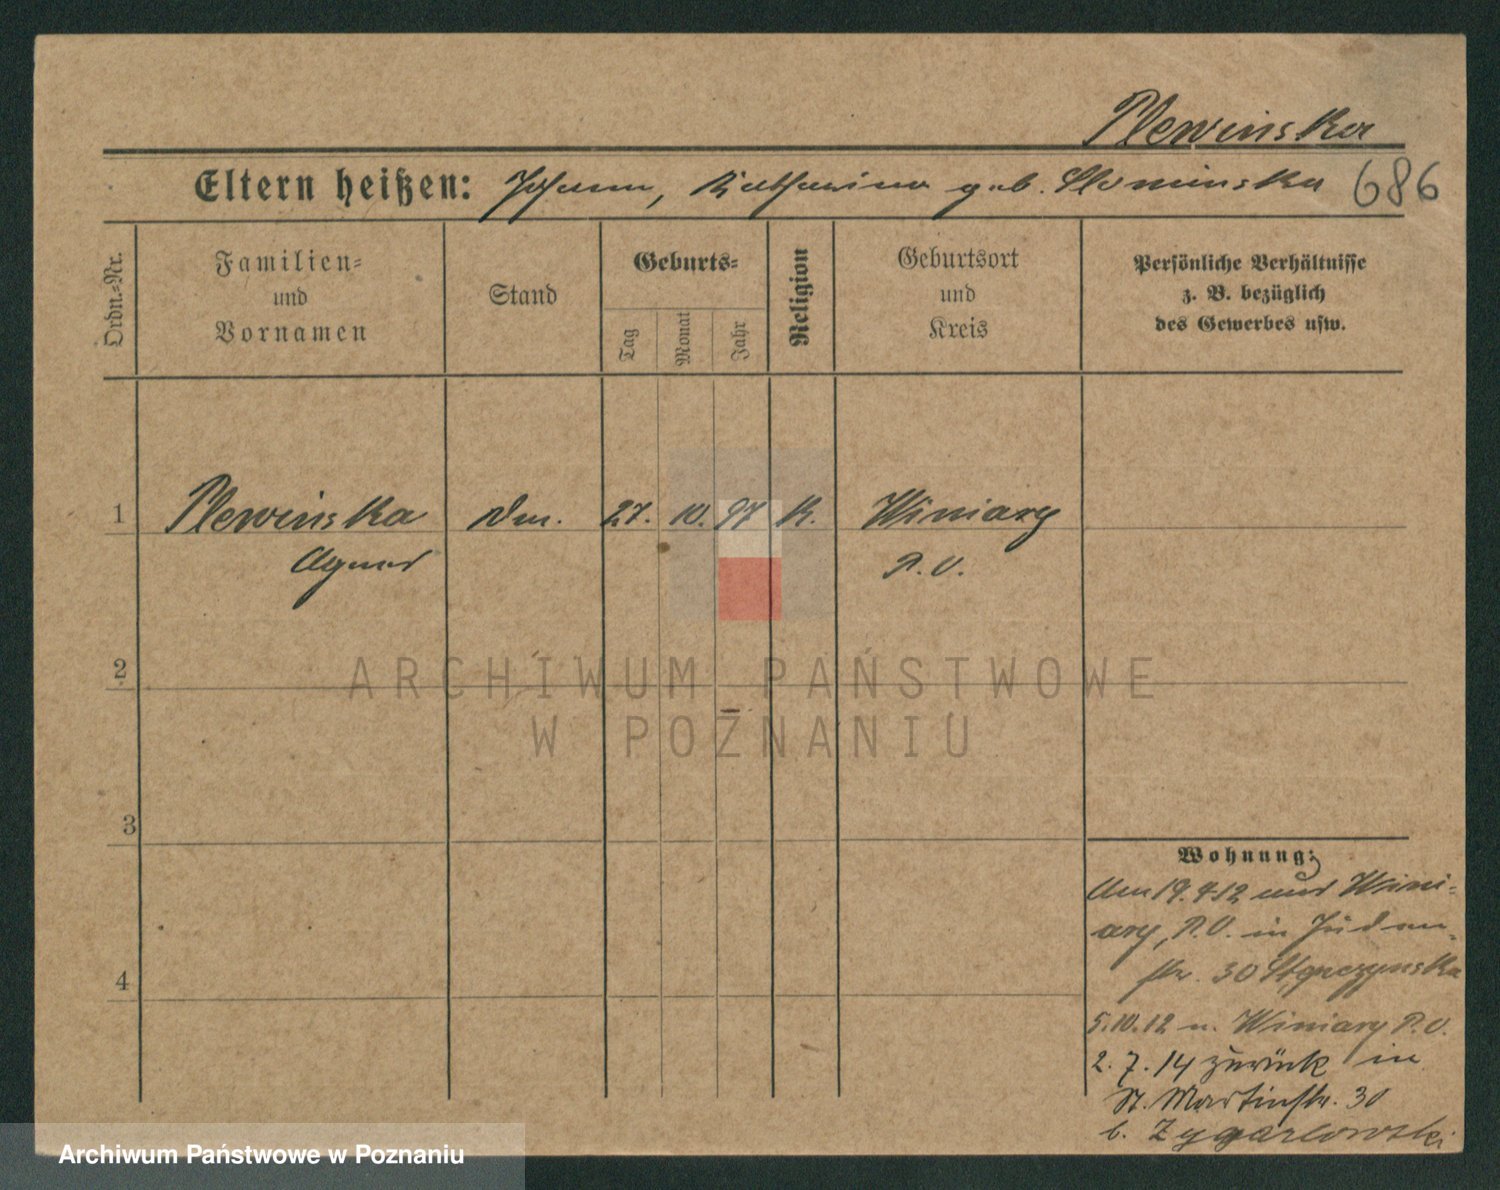 Plewinska
Eltern heißen: Johann, Katharina geb. Slominska 686
Ordn.-Nr.
Familien-
und
Vornamen
Stand
Geburts-
Tag
Monat
Jahr
Religion
Geburtsort
und
Kreis
Persönliche Verhältnisse
z. B. bezüglich
des Gewerbes usw.
1 Plewinska 27. 10. 97 K. Winiary
Agnes P. O.
2
ARCHIWUM PAŃSTWOWE
W POZNANIU
3
4
Wohnung:
Am 19. 4 12 aus Wini-
ary, P.O. in Juden-
str. 30
5.10.12 n. Winiary P.O.
2. 7. 14 zurück in
St. Martinstr. 30
b. Zygarlowski
Archiwum Państwowe w Poznaniu